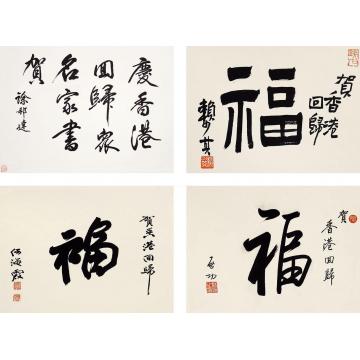 慶香港
回歸眾
名家書
賀
徐邦達
賀香港
回歸
福
賴少其
賀香港回歸
福
何海霞
賀
香港回歸
福
启功